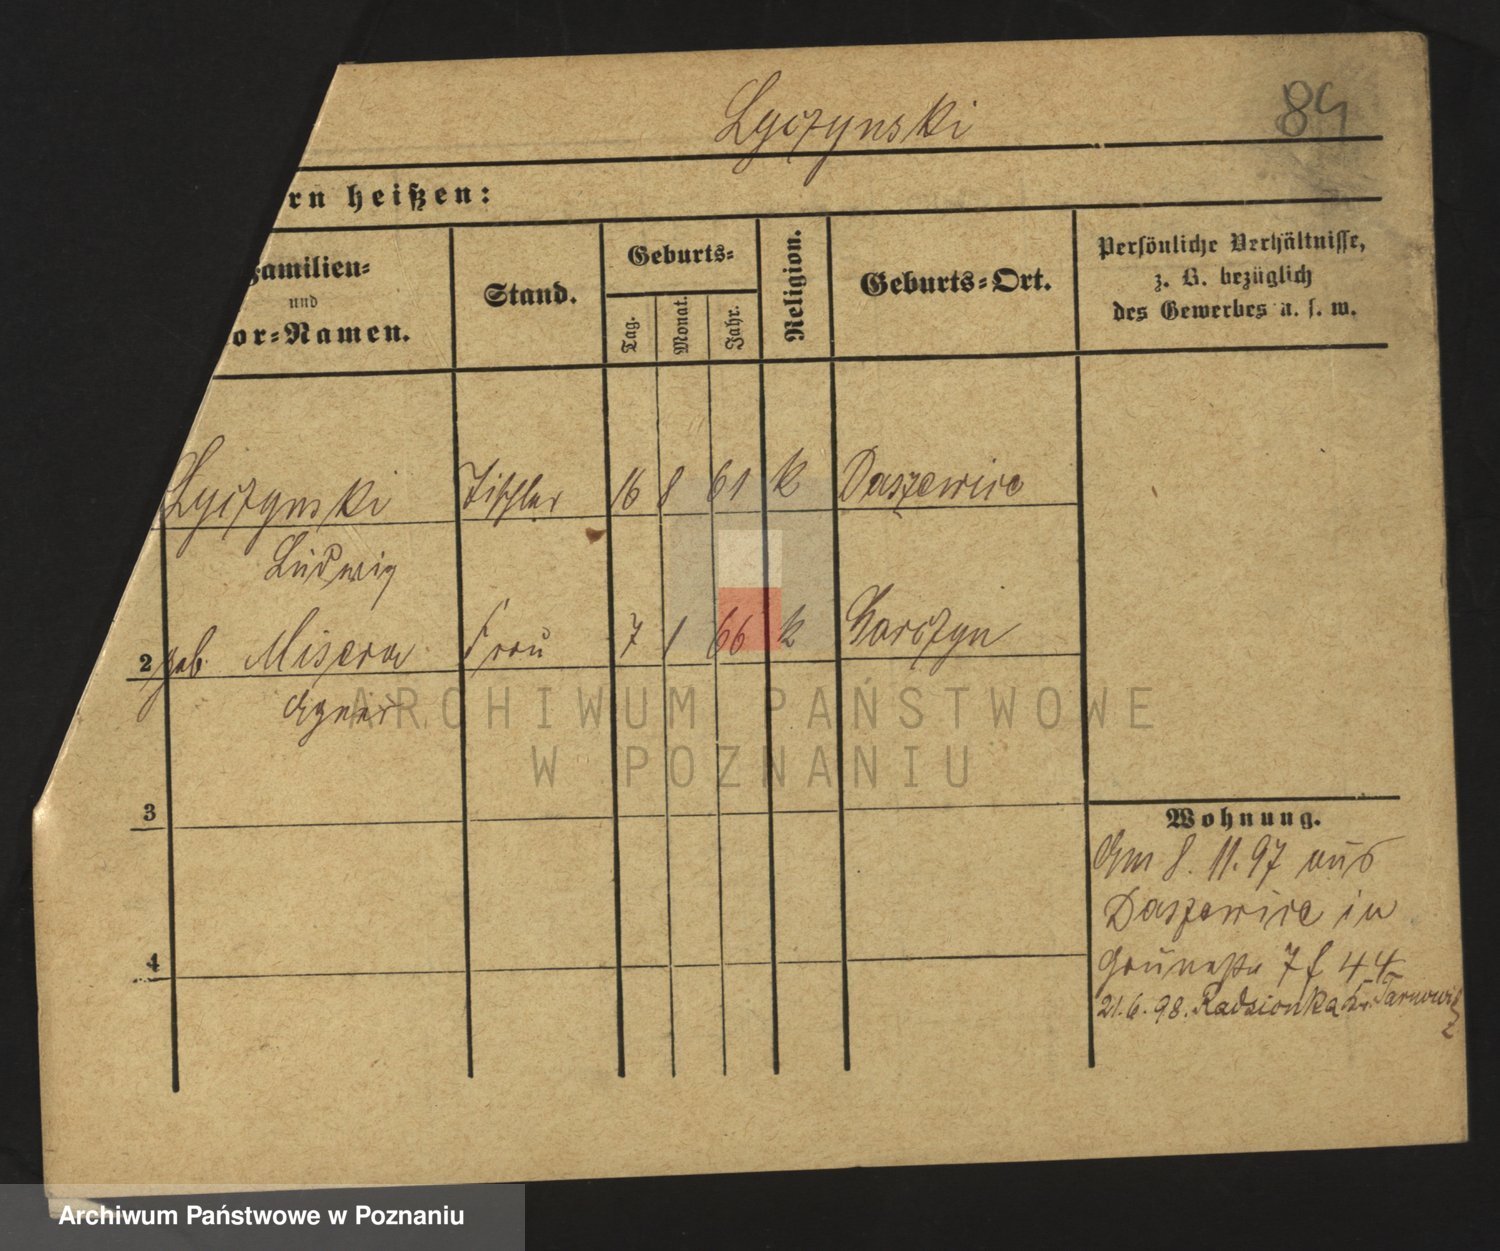 Lyczynski
84
rn heißen:
Familien=
und
or=Namen.
Stand.
Geburts=
Tag.
Monat.
Jahr.
Religion.
Geburts=Ort.
Persönliche Verhältnisse,
z. B. bezüglich
des Gewerbes u. s. w.
Lyczynski Tischler 16 8 61 k Daszewice
Ludwig
2 geb. Misera Frau 7 1 66 k
Agnes
3
4
Wohnung.
Am 8. 11. 97 aus
Daszewice in
Grünestr 7 f 44
21.6.98. Radzionka Kr. Tarnowitz
ARCHIWUM PAŃSTWOWE
W POZNANIU
Archiwum Państwowe w Poznaniu